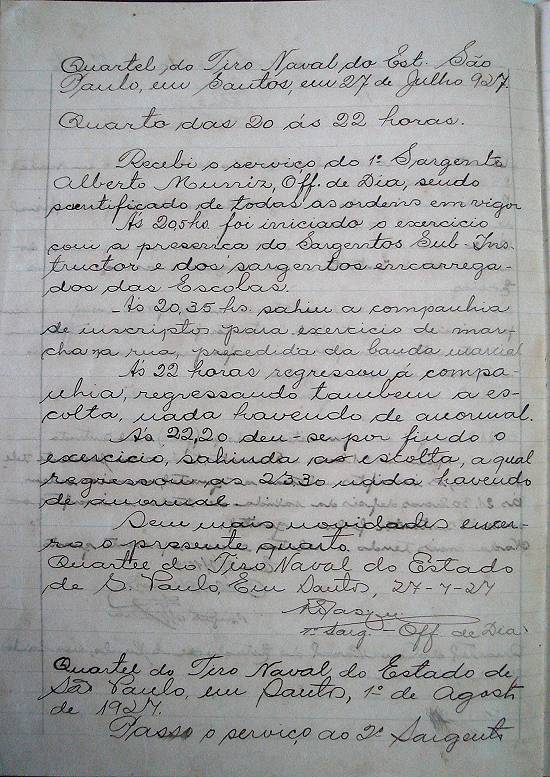 Quartel do Tiro Naval do Est. São
Paulo, em Santos, em 27 de Julho 927.
Quarto das 20 ás 22 horas.
Recebi o serviço do 1º Sargento
Alberto Munniz, Off. de Dia, sendo
scentificado de todas as ordens em vigor
Ás 20,5 hs foi iniciado o exercicio
com a presença do Sargentos Sub-Ins-
tructor e dos sargentos encarrega-
dos das Escolas.
Ás 20,35 hs. sahiu a companhia
de inscriptos para exercicio de mar-
cha na rua, precedida da banda marcial
Ás 22 horas regressou á compa-
nhia, regressando tambem a es-
colta, nada havendo de anormal.
Ás 22,20 deu-se por findo o
exercicio, sahindo as escolta, a qual
regressou as 2330 nada havendo
de anormal
Sem mais novidades encer-
ro o presente quarto.
Quartel do Tiro Naval do Estado
de S. Paulo, Em Santos, 27-7-27
Sarg. - Off. de Dia
Quartel do Tiro Naval do Estado de
São Paulo, em Santos, 1º de Agosto
de 1927.
Passo o serviço ao 2º Sargento